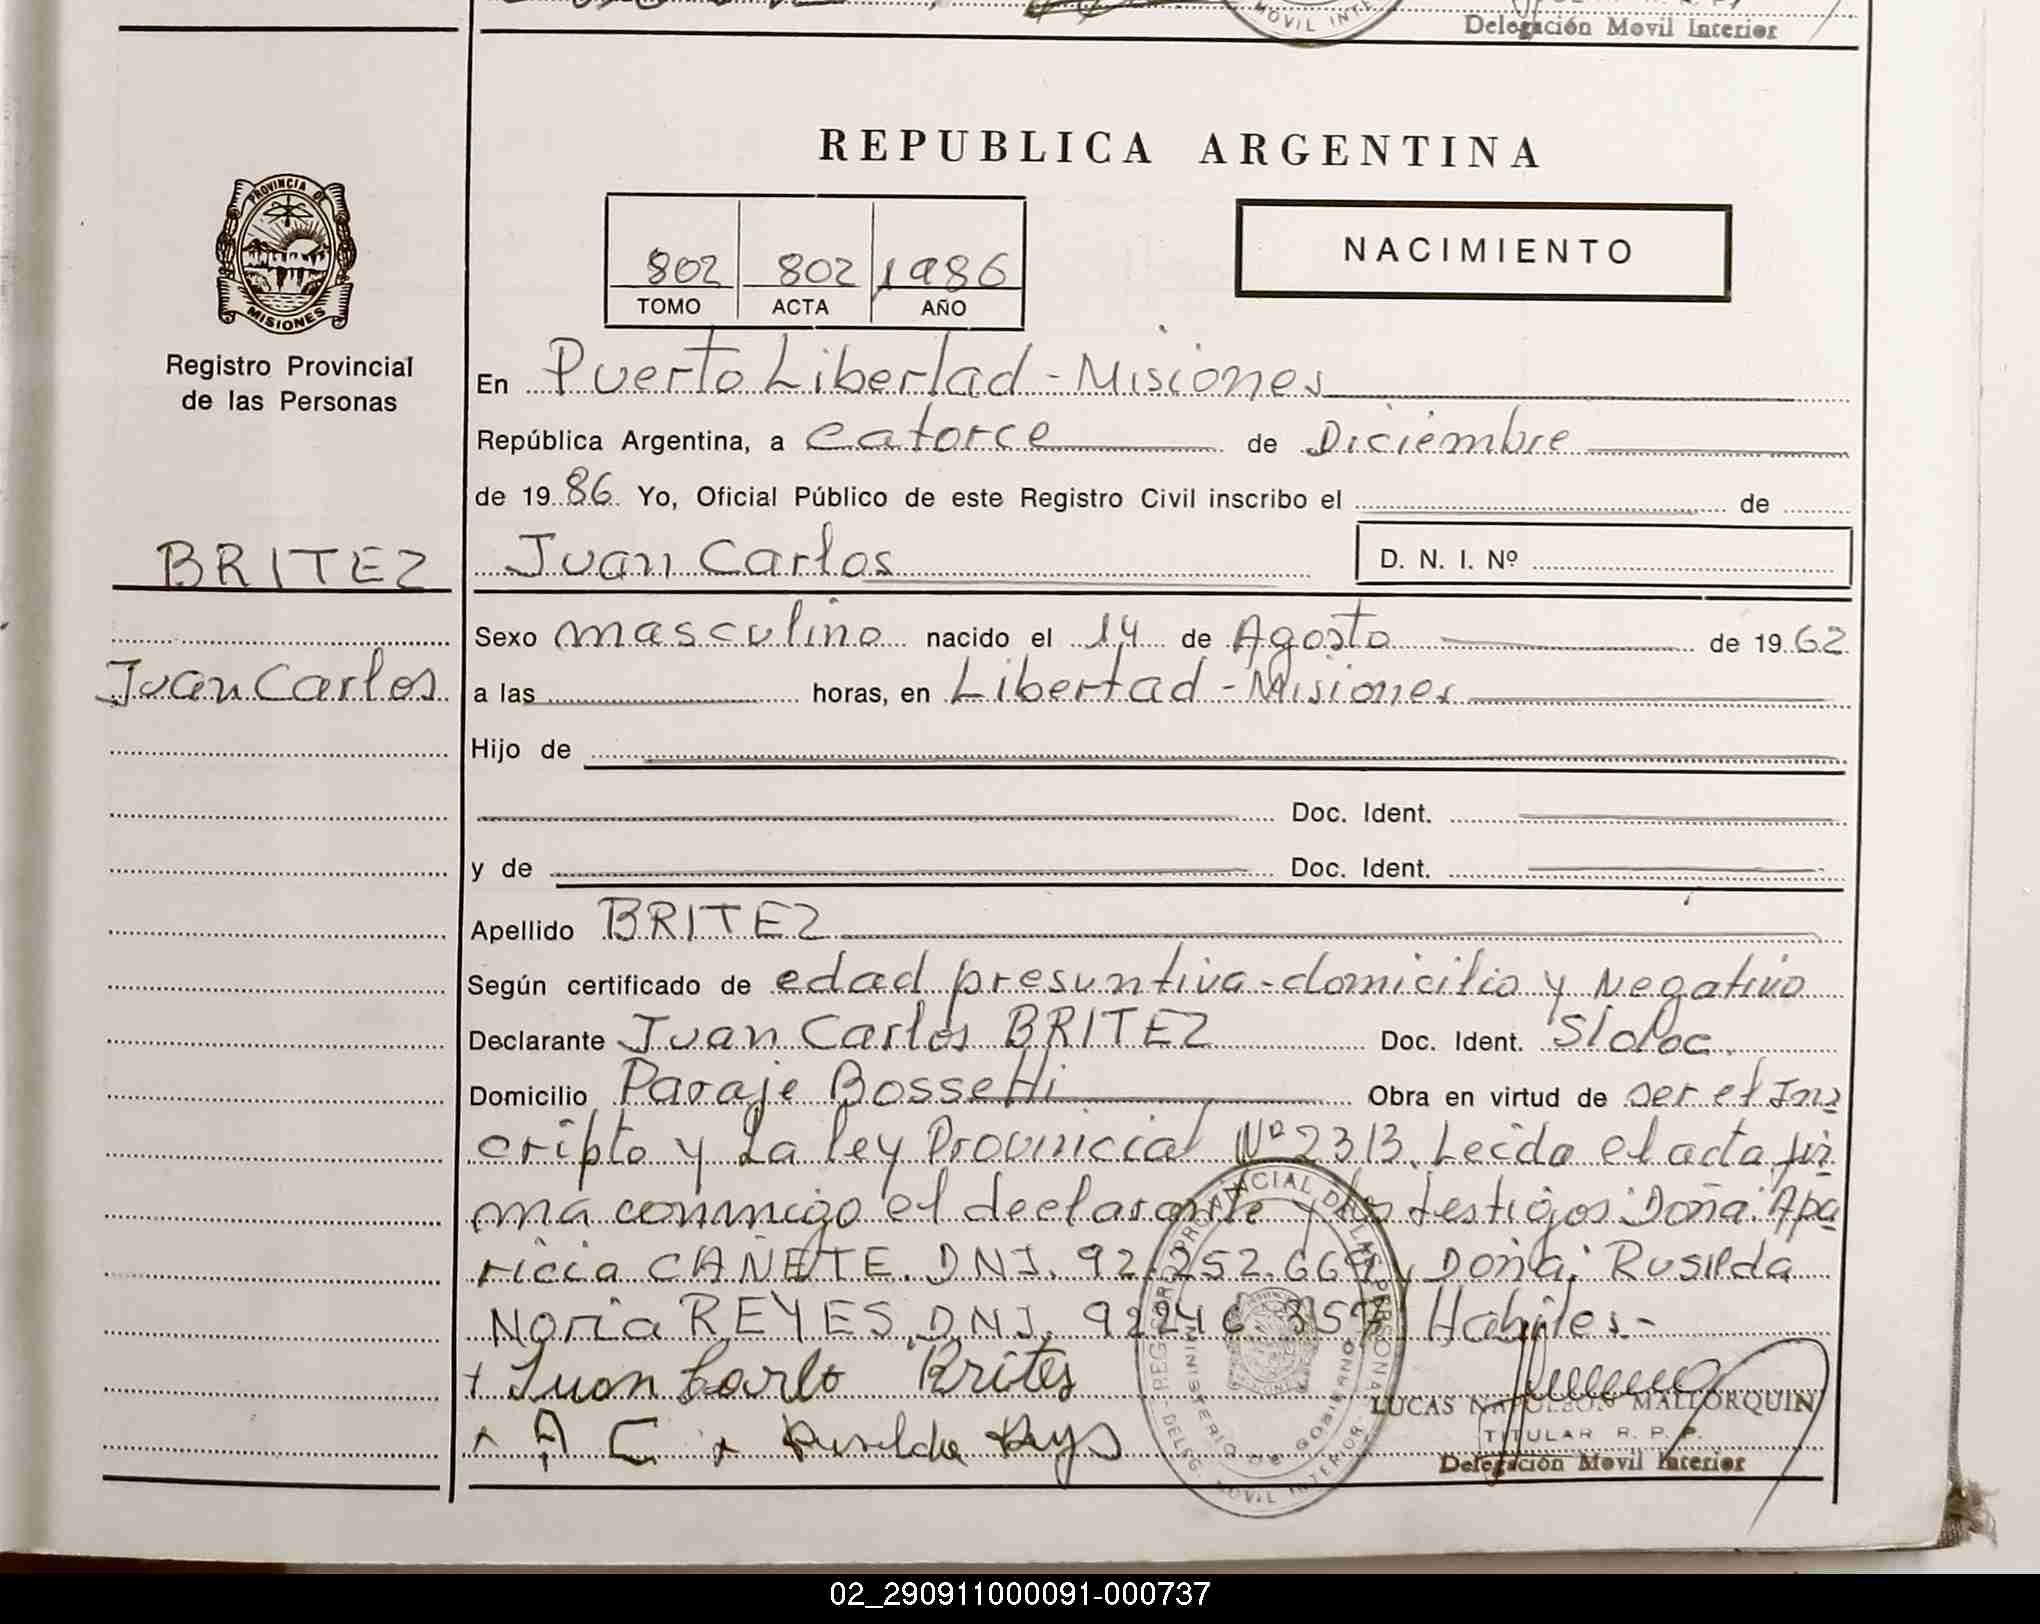 MOVIL INTE
Delegación Movil Interior
REPUBLICA ARGENTINA
PROVINCIA DE
MISIONES
Registro Provincial
de las Personas
802 802 1986
TOMO ACTA AÑO
NACIMIENTO
En Puerto Libertad - Misiones
República Argentina, a catorce de Diciembre
de 1986 Yo, Oficial Público de este Registro Civil inscribo el de
BRITEZ
Juan Carlos D. N. I. Nº
Sexo masculino nacido el 14 de Agosto de 1962
Juan Carlos
a las horas, en Libertad - Misiones
Hijo de
Doc. Ident.
y de Doc. Ident.
Apellido BRITEZ
Según certificado de edad presuntiva - domicilio y Negativo
Declarante Juan Carlos BRITEZ Doc. Ident. S/doc.
Domicilio Paraje Bossetti Obra en virtud de ser el Ins
cripto y La ley Provinicial Nº 2313. Leida el acta fir
ma conmigo el declarante y los testigos Doña: Apa
ricia CAÑETE. DNI. 92.252.669 y Doña: Rusilda
Noria REYES. DNI. 92246357 Habiles.-
+ Juan Carlo Brites
+ A C + Rusilda Rys
LUCAS NAPOLEON MALLORQUIN
TITULAR R. P. P.
Delegación Movil Interior
REGISTRO PROVINCIAL DE LAS PERSONAS
MINISTERIO DE GOBIERNO
DELEG. MOVIL INTERIOR
02_290911000091-000737